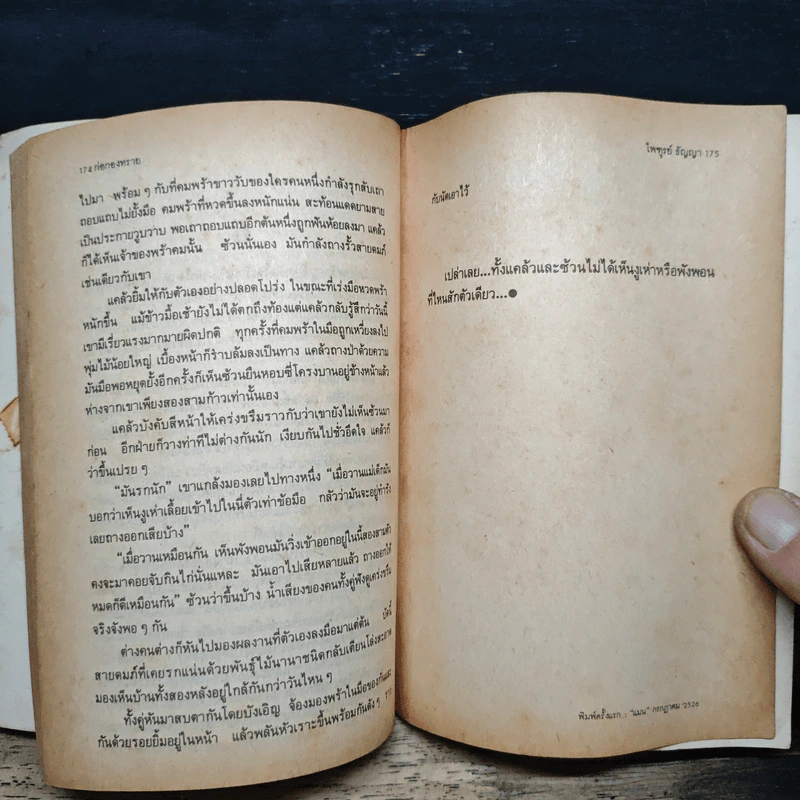 174 ก่อกองทราย
ไปมา พร้อม ๆ กับที่คมพร้าขาววับของใครคนหนึ่งกำลังรุกลับเถา
ถอบแถบไม่ยั้งมือ คมพร้าที่หวดขึ้นลงหนักแน่น สะท้อนแดดยามสาย
เป็นประกายวูบวาบ พอเถาถอบแถบอีกต้นหนึ่งถูกฟันห้อยลงมา แคล้ว
ก็ได้เห็นเจ้าของพร้าคมนั้น ซ้วนนั่นเอง มันกำลังถางรั้วสายดมภ์
เช่นเดียวกับเขา
แคล้วยิ้มให้กับตัวเองอย่างปลอดโปร่ง ในขณะที่เร่งมือหวดพร้า
หนักขึ้น แม้ข้าวมื้อเช้ายังไม่ได้ตกถึงท้องแต่แคล้วกลับรู้สึกว่าวันนี้
เขามีเรี่ยวแรงมากมายผิดปกติ ทุกครั้งที่คมพร้าในมือถูกเหวี่ยงลงไป
พุ่มไม้น้อยใหญ่ เบื้องหน้าก็ราบล้มลงเป็นทาง แคล้วถางป่าด้วยความ
มันมือพอหยุดยั้งอีกครั้งก็เห็นซ้วนยืนหอบซี่โครงบานอยู่ข้างหน้าแล้ว
ห่างจากเขาเพียงสองสามก้าวเท่านั้นเอง
แคล้วบังคับสีหน้าให้เคร่งขรึมราวกับว่าเขายังไม่เห็นซ้วนมา
ก่อน อีกฝ่ายก็วางท่าทีไม่ต่างกันนัก เงียบกันไปชั่วอึดใจ แคล้วก็
ว่าขึ้นเปรย ๆ
“มันรกนัก” เขาแกล้งมองเลยไปทางหนึ่ง “เมื่อวานแม่เด็กมัน
บอกว่าเห็นงูเห่าเลื้อยเข้าไปในนี้ตัวเท่าข้อมือ กลัวว่ามันจะอยู่ทำรัง
เลยถางออกเสียบ้าง”
“เมื่อวานเหมือนกัน เห็นพังพอนมันวิ่งเข้าออกอยู่ในนี้สองสามตัว
คงจะมาคอยจับกินไก่นั่นแหละ มันเอาไปเสียหลายแล้ว ถางออกให้
หมดก็ดีเหมือนกัน” ซ้วนว่าขึ้นบ้าง น้ำเสียงของคนทั้งคู่ฟังดูเคร่งขรึม
จริงจังพอ ๆ กัน
ต่างคนต่างก็หันไปมองผลงานที่ตัวเองลงมือมาแต่ต้น บัดนี้
สายดมภ์ที่เคยรกแน่นด้วยพันธุ์ไม้นานาชนิดกลับเตียนโล่งสะอาด
มองเห็นบ้านทั้งสองหลังอยู่ใกล้กันกว่าวันไหน ๆ
ทั้งคู่หันมาสบตากันโดยบังเอิญ จ้องมองพร้าในมือของกันและ
กันด้วยรอยยิ้มอยู่ในหน้า แล้วพลันหัวเราะขึ้นพร้อมกันดัง ๆ ราว
ไพฑูรย์ ธัญญา 175
กับนัดเอาไว้
เปล่าเลย...ทั้งแคล้วและซ้วนไม่ได้เห็นงูเห่าหรือพังพอน
ที่ไหนสักตัวเดียว...●
พิมพ์ครั้งแรก : “แมน” กรกฎาคม 2526